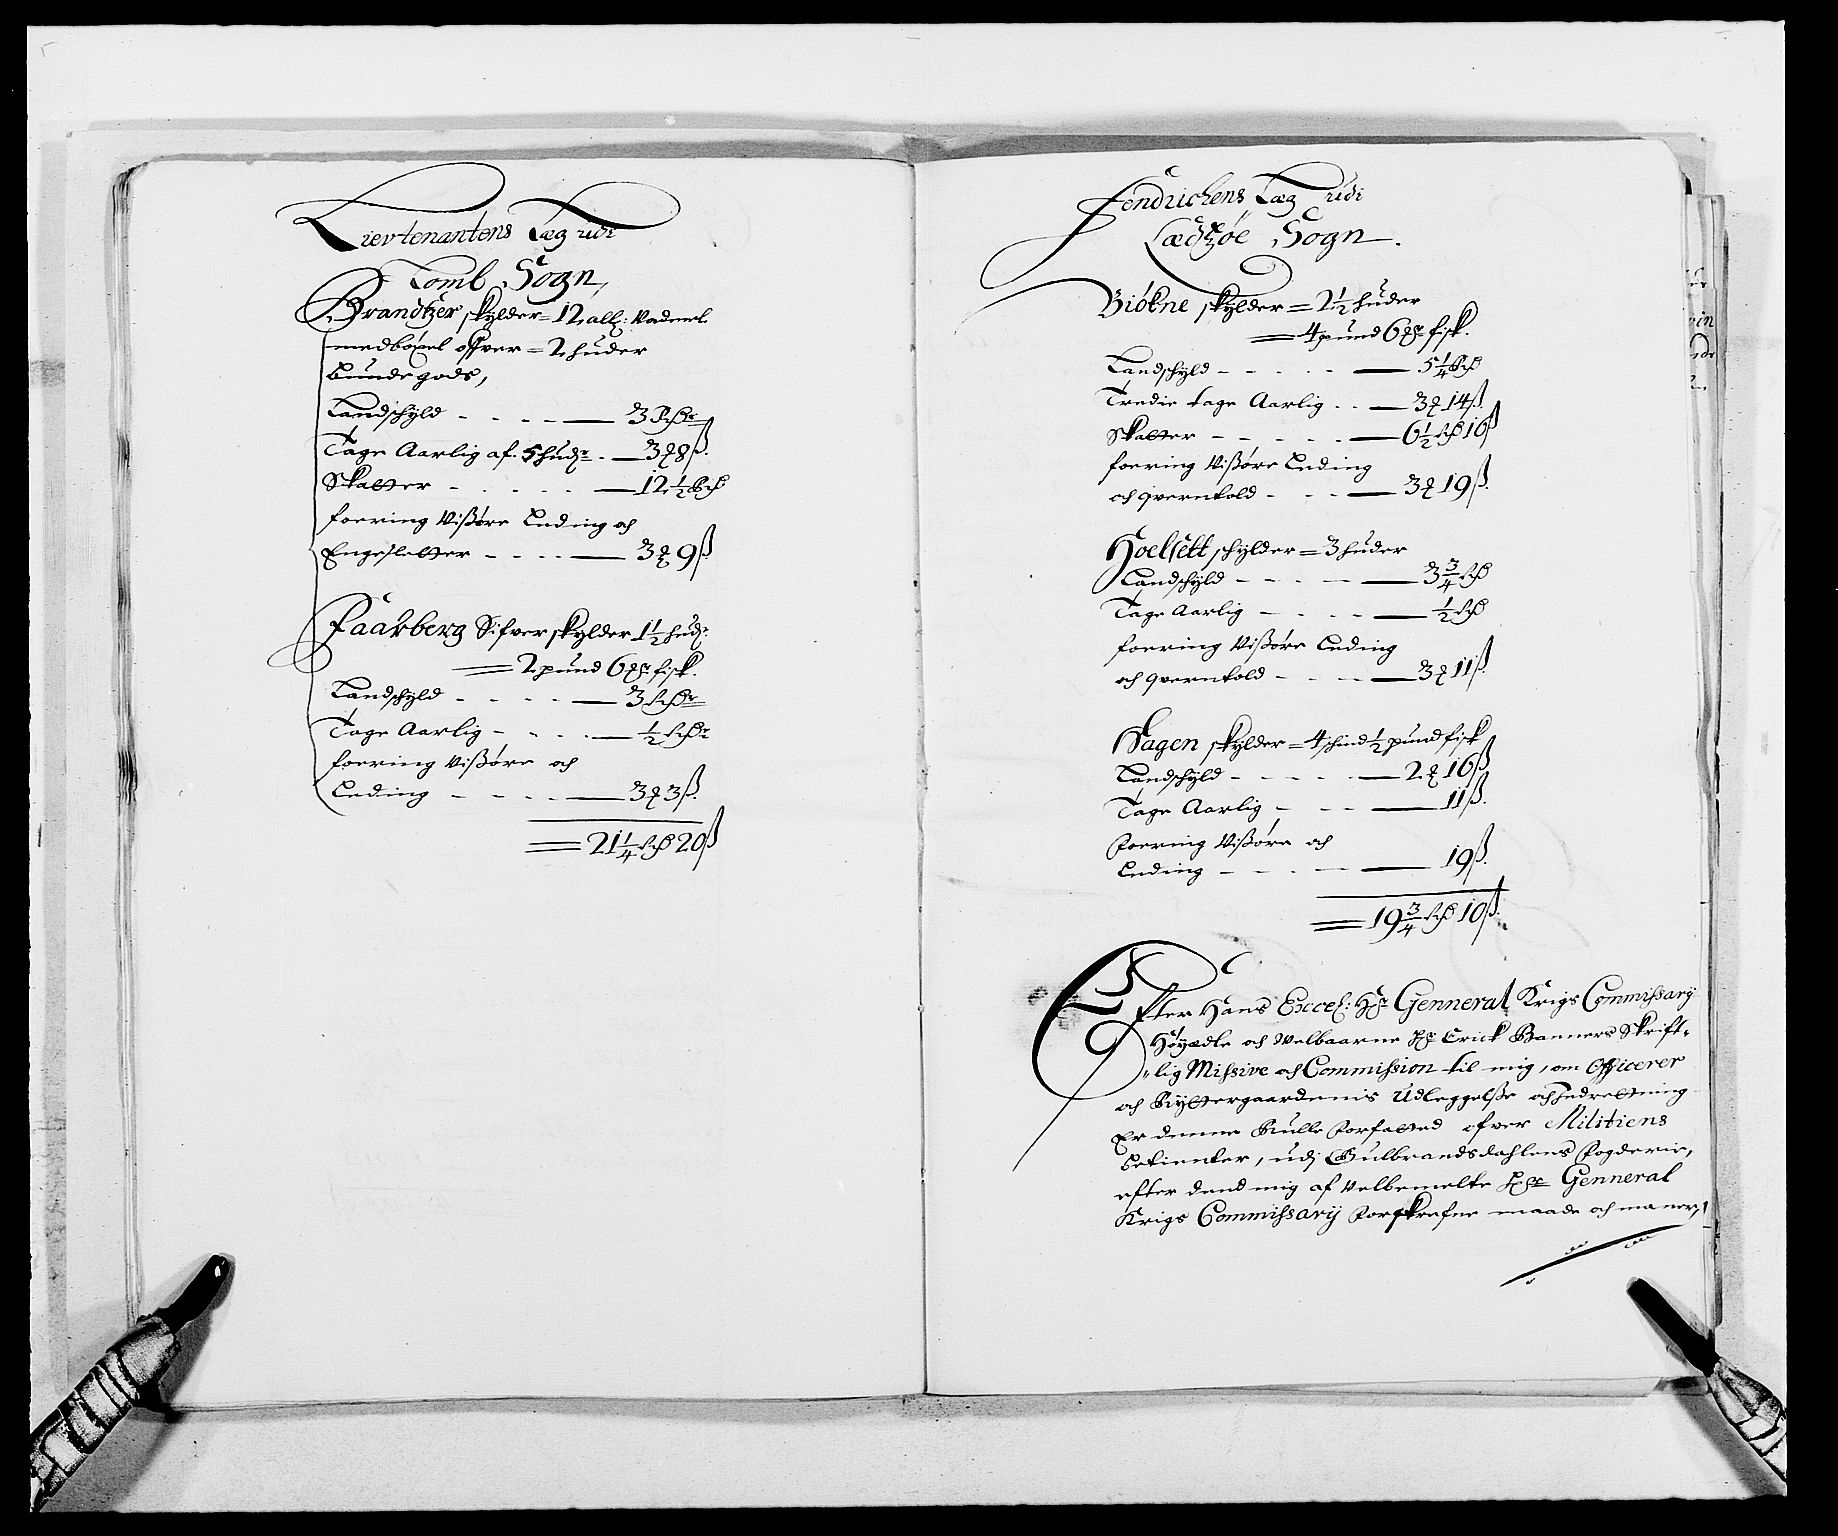 Lievtenantens Læg udi
Lomb Sogn,
Brandtzer skylder = 12 all: Vadmel
med böxel ofver = 2 huder
bunde gods,
Landschyld - - - - — 3 Rdr
Tage Aarlig af 5 hudr - — 3 ß 8 ß.
Skatter - - - - - — 12 1/2 Rd
foering Vißöre Leding och
Engeslætter - - - - — 3 9 ß
Faarberg Sifver skylder 1 1/2 hudr:
= 2 pund 6 fisk.
Landschyld - - - - — 3 Rdr
Tage Aarlig - - - - — 1/2 Rdr
foering Vißöre och
Leding - - - - — 3 3 ß.
= 21 1/4 Rd 20 ß
Fendrichens Læg udi
Sogn.
Biökne skylder = 2 1/2 huder
= 4 pund 6 fisk.
Landschyld - - - - - — 5 1/4 Rd
Tredie tage Aarlig - - — 3 14 ß.
Skatter - - - - - — 6 1/2 Rd 16 ß
foering Vißöre Leding
och qverntold - - - — 3 19 ß.
Hoelsett schylder = 3 huder
Landschyld - - - - — 3 3/4 Rd
Tage Aarlig - - - - — 1/2 Rd
foering Vißöre Leding
och qverntold - - - — 3 11 ß.
Hagen skylder = 4 schind 1/2 pund fisk
Landschyld - - - - - — 2 16 ß
Tage Aarlig - - - — 11 ß.
foering Vißöre och
Leding - - - - — 19 ß.
= 19 3/4 Rd 10 ß.
Efter Hans Excel: Hr Genneral Krigs Commissarij
Höyædle och Velbaarne Hr Erick Banners Skrift-
-lig Missive och Commission til mig, om Officerer
och Ryttergaardenis Udleggelße och Indretning
Er denne Rulle forfatted ofver Militiens
betienter, udj Gulbrandsdahlens fogderie,
efter dend mig af velbemelte Hr Genneral
Krigs Commissarij forskrefne maade och maner,